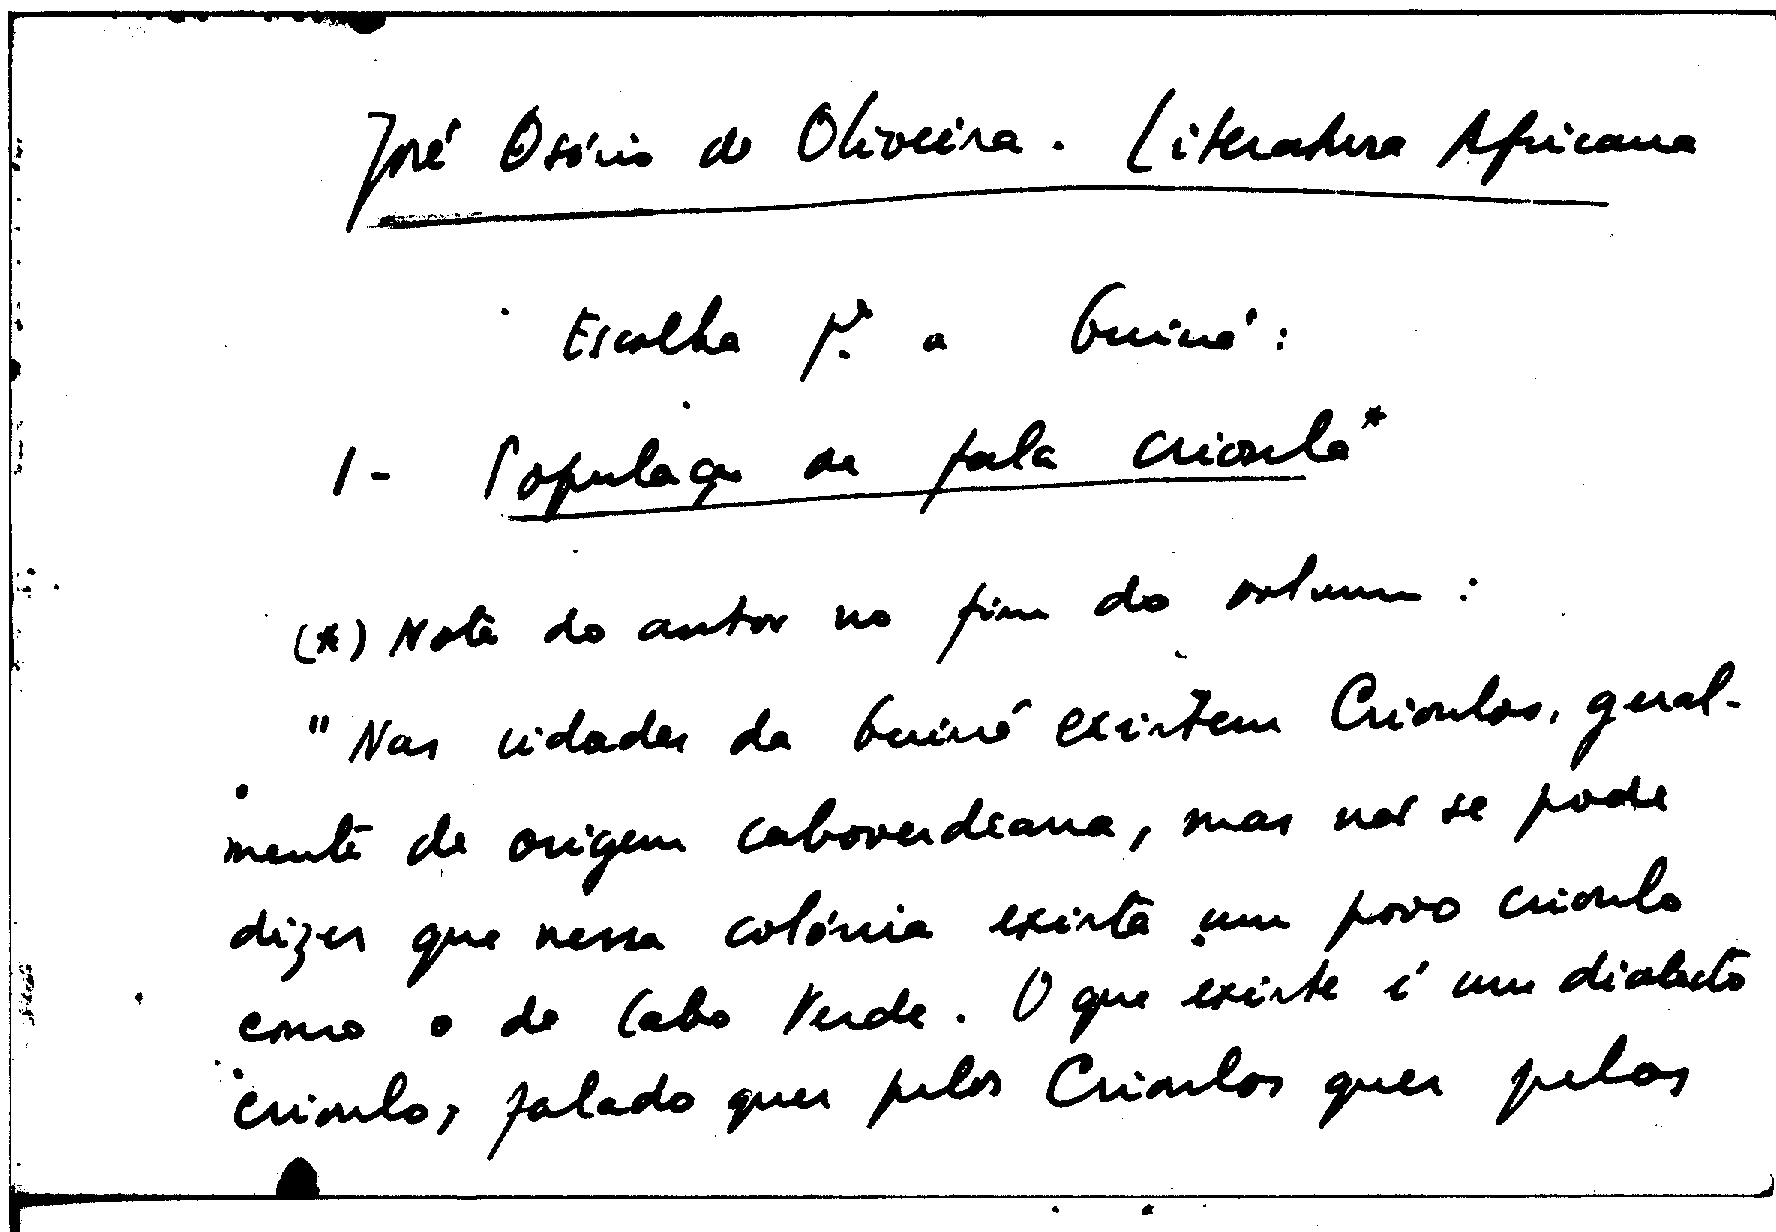 José Osório de Oliveira. Literatura Africana
Escolha pª. a Guiné:
1- População de fala crioula*
(*) Nota do autor no fim do volume:
"Nas cidades da Guiné existem Crioulos, geral-
mente de origem caboverdiana, mas não se pode
dizer que nessa colónia exista um povo crioulo
como o de Cabo Verde. O que existe é um dialecto
crioulo, falado quer pelos Crioulos quer pelos